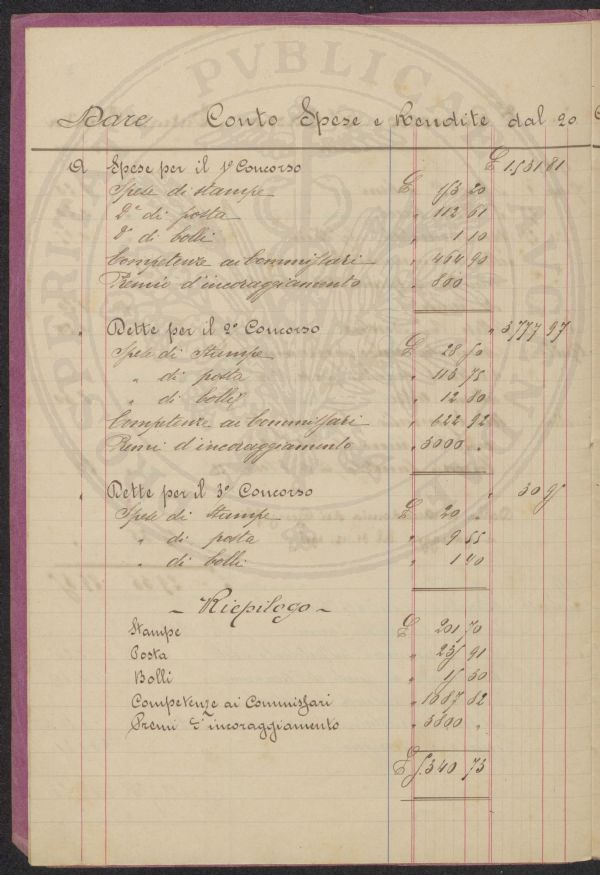 PROSPERITATI PVBLICAE AVGENDAE
Dare Conto Spese e Rendite dal 20
A Spese per il 1º Concorso £ 1531 81
Spese di stampe £ 153 20
Dº di posta " 112 61
Dº di bolli " 1 10
Competenze ai Commissari " 464 90
Premio d'incoraggiamento " 800
" Dette per il 2º Concorso " 3777 97
Spese di Stampe £ 28 50
" di posta " 113 75
" di bolli " 12 80
Competenze ai Commissari " 622 92
Premi d'incoraggiamento " 3000 "
" Dette per il 3º Concorso " 30 95
Spese di Stampe £ 20 "
" di posta " 9 55
" di bolli " 1 40
- Riepilogo -
Stampe £ 201 70
Posta " 235 91
Bolli " 15 30
Competenze ai Commissari " 1087 82
Premi d'incoraggiamento " 3800 "
£ 5340 73